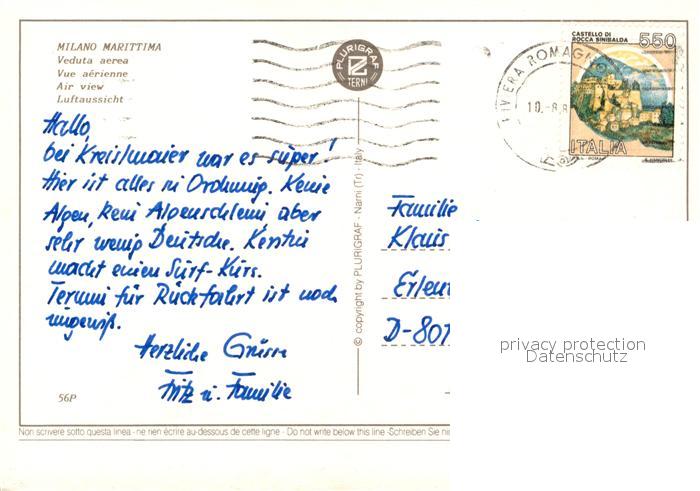 MILANO MARITTIMA
Veduta aerea
Vue aérienne
Air view
Luftaussicht
PLURIGRAF
TERNI
RIVIERA ROMAG
10.-8.8
CASTELLO DI
ROCCA SINIBALDA
550
ITALIA
Hallo,
bei Kreislmaier war es super!
Hier ist alles in Ordnung. Keine
Algen, kein Algenschleim, aber
sehr wenig Deutsche. Kerstin
macht einen Surf-Kurs.
Termin für Rückfahrt ist noch
ungewiß.
Herzliche Grüsse
Fritz u. Familie
© copyright by PLURIGRAF - Narni (Tr) - Italy
Familie
Klaus
Erlen
D-801
privacy protection
Datenschutz
56P
Non scrivere sotto questa linea - ne rien écrire au-dessous de cette ligne - Do not write below this line - Schreiben Sie ni